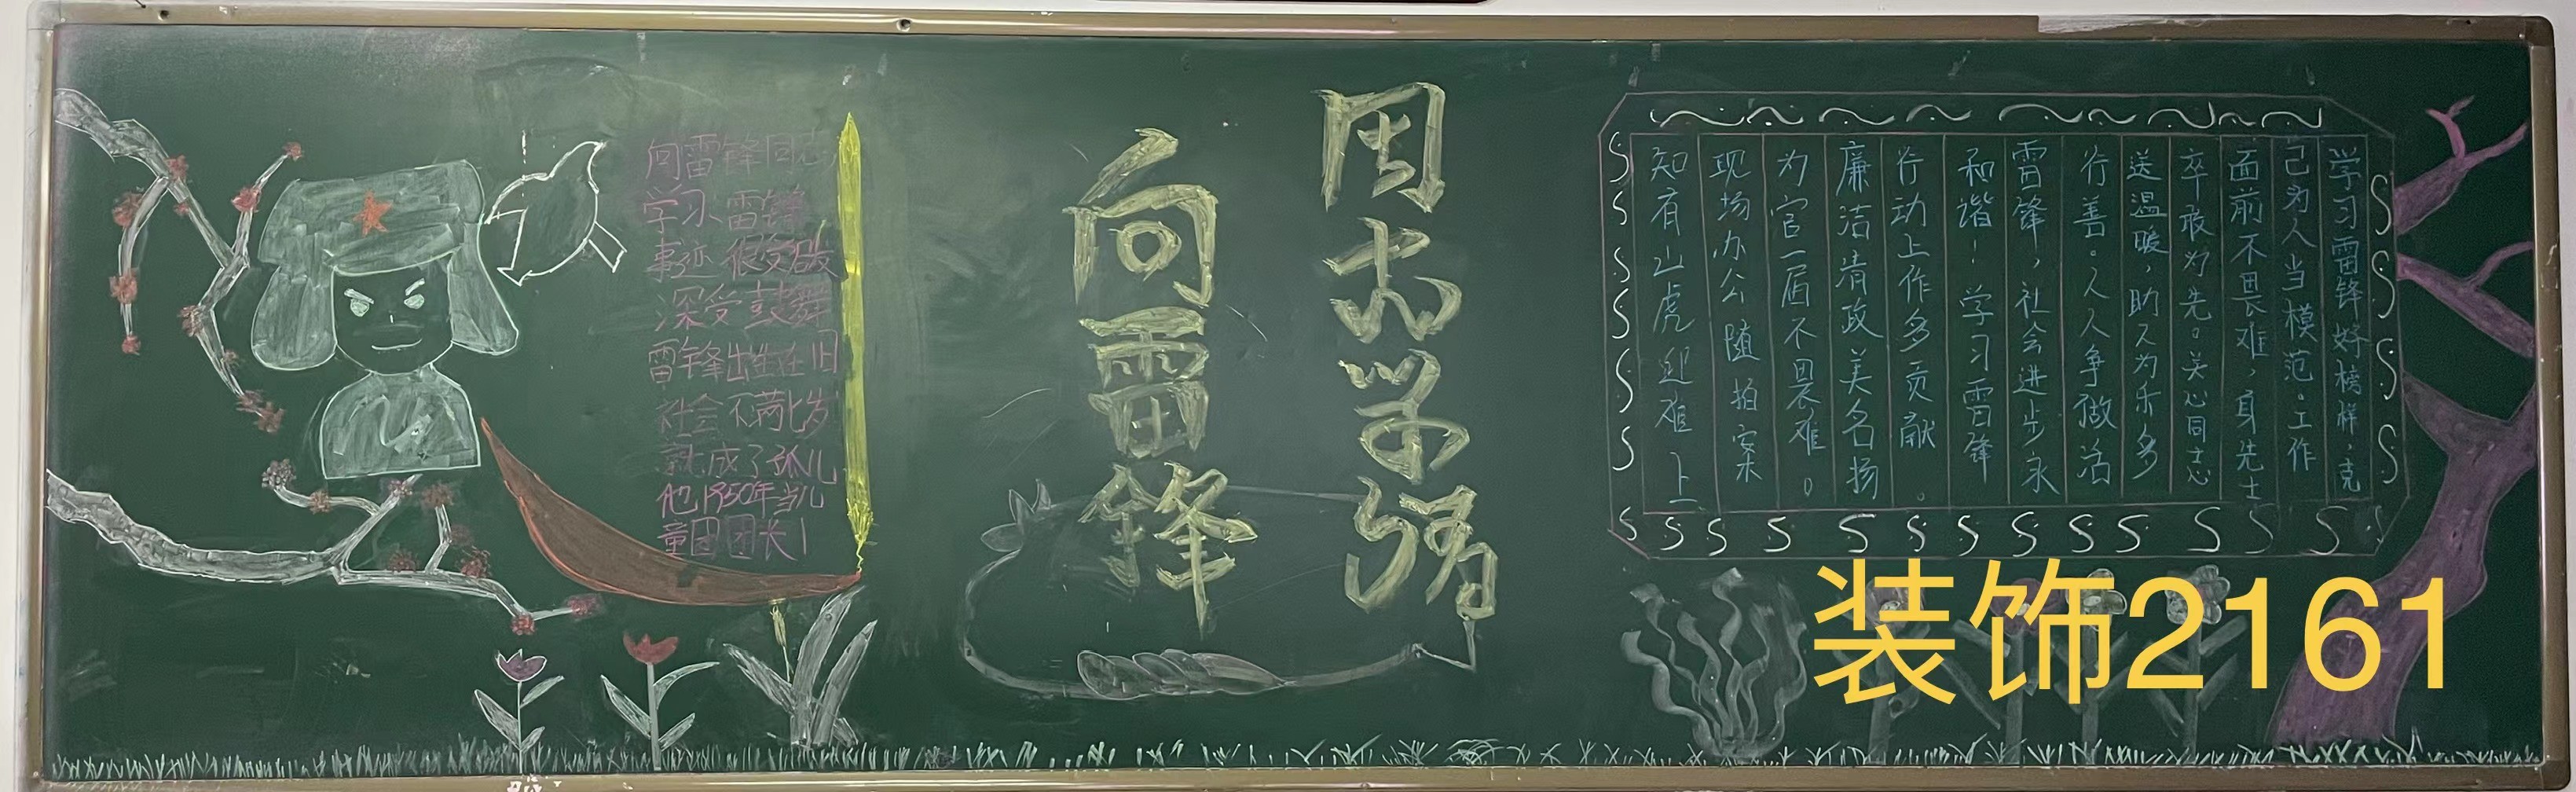 向雷锋同志
学习雷锋
事迹很受
深受鼓舞
雷锋出生在旧
社会不满七岁
就成了孤儿
他1950年当儿
童团团长
向雷锋
学习雷锋好榜样，克
己为人当模范。工作
面前不畏难，身先士
卒敢为先。关心同志
送温暖，助人为乐多
行善。人人争做活
雷锋，社会进步永
和谐！学习雷锋
行动上作多贡献。
廉洁清政美名扬
为官一届不畏难。
现场办公随拍案
知有山虎迎难上
装饰2161